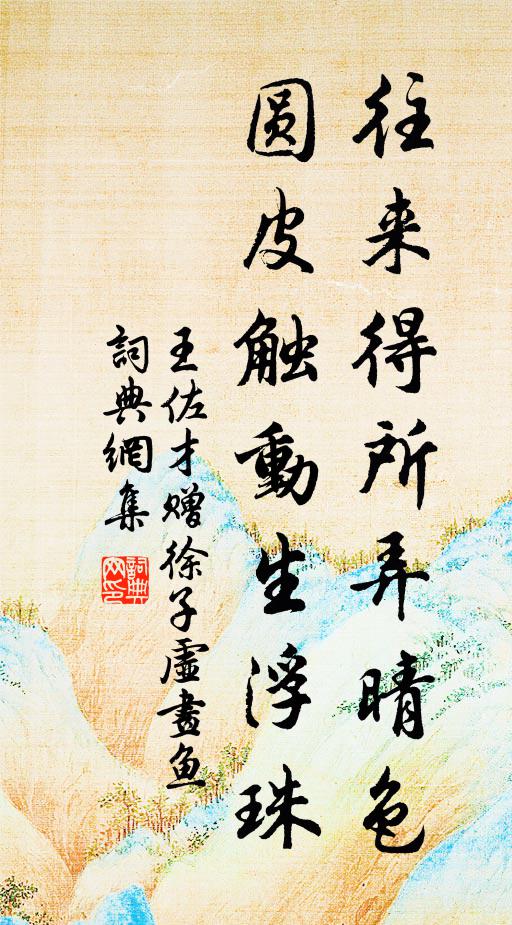 往来得所弄晴色
圆皮触動生浮珠
王佐才赠徐子虚畫鱼
詞典網集
詞典网印